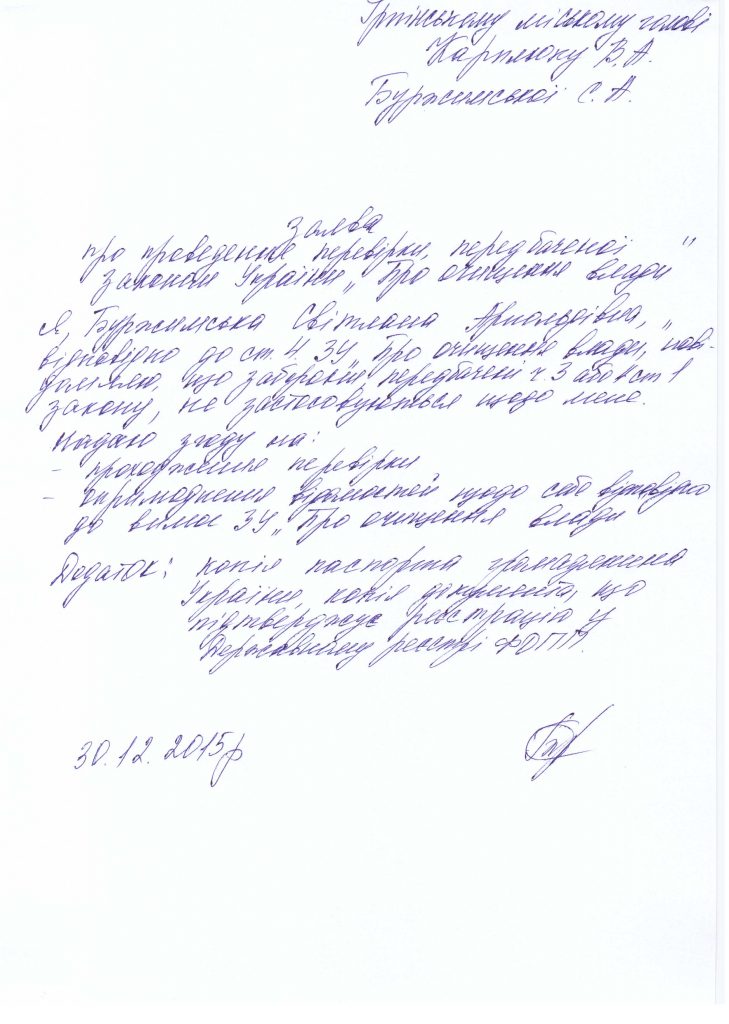 Ірпінському міському голові
Карплюку В.А.
Буржимської С.А.
Заява
про проведення перевірки, передбаченої
Законом України „Про очищення влади"
Я, Буржимська Світлана Арнольдівна,
відповідно до ст. 4 ЗУ „Про очищення влади", пові-
домляю, що заборони, передбачені ч. 3 або 4 ст 1
закону, не застосовуються щодо мене.
Надаю згоду на:
- проходження перевірки
- оприлюднення відомостей щодо себе відповідно
до вимог ЗУ „Про очищення влади
Додаток: копія паспорта громадянина
України, копія документа, що
підтверджує реєстрацію у
Державному реєстрі ФОПП.
30.12.2015р